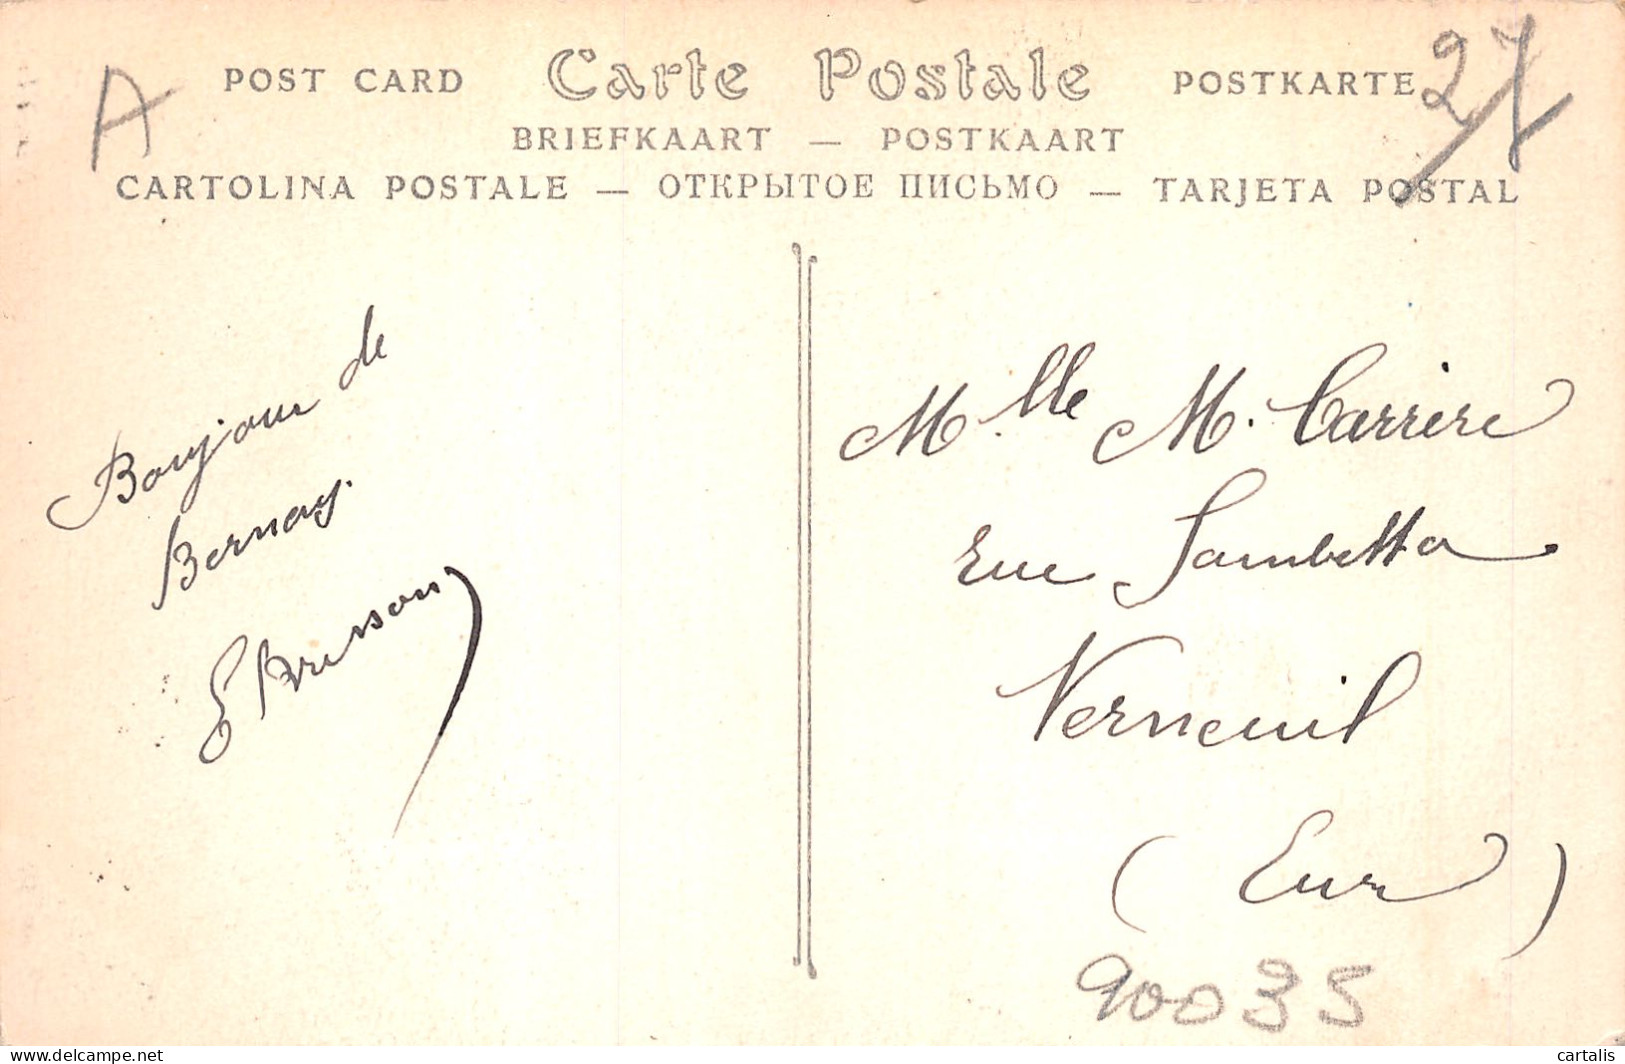 A
27
POST CARD Carte Postale POSTKARTE
BRIEFKAART — POSTKAART
CARTOLINA POSTALE — ОТКРЫТОЕ ПИСЬМО — TARJETA POSTAL
Bonjour de
Bernay.
E Brusson
Mlle M. Carrère
Rue Gambetta
Verneuil
(Eure)
90035
cartalis